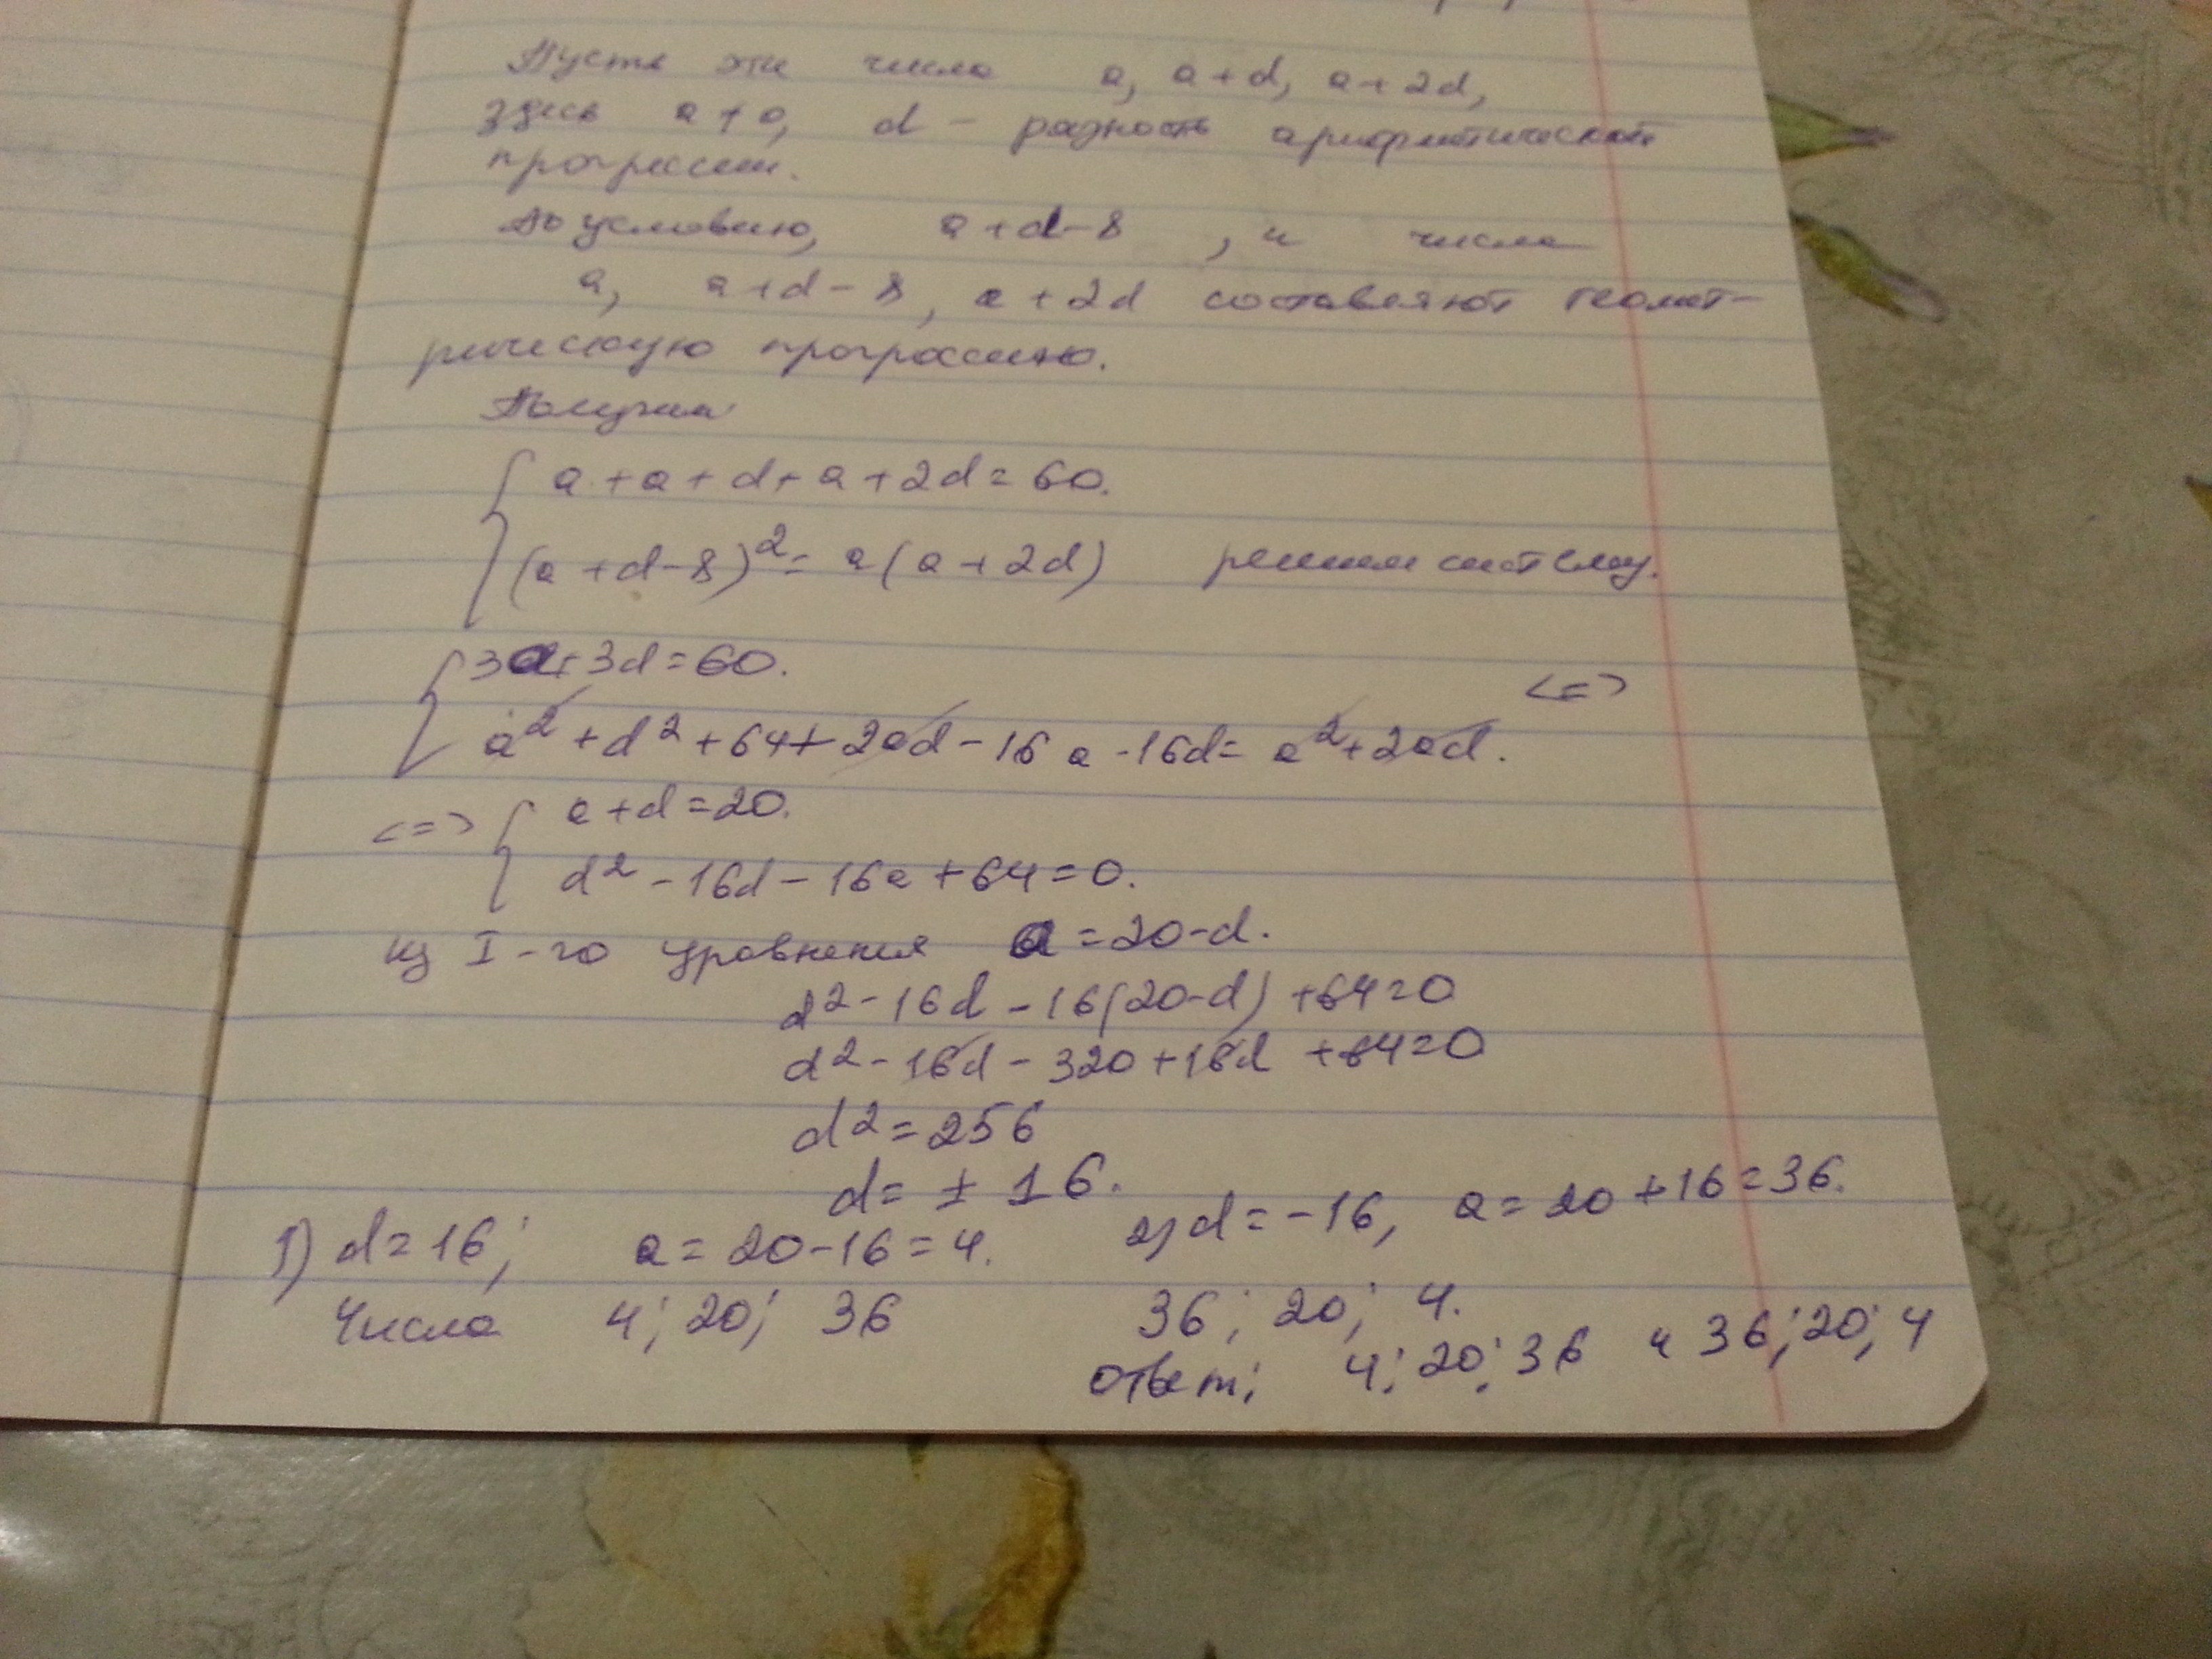 Пусть эти числа a, a+d, a+2d,
здесь a≠0, d - разность арифметической
прогрессии.
По условию, a+d-8, и числа
a, a+d-8, a+2d составляют геомет-
рическую прогрессию.
Получим
{ a+a+d+a+2d=60.
(a+d-8)²=a(a+2d) решим систему.
{ 3a+3d=60.
a²+d²+64+2ad-16a-16d=a²+2ad. <=>
<=> { a+d=20.
d²-16d-16a+64=0.
из I-го уравнения a=20-d.
d²-16d-16(20-d)+64=0
d²-16d-320+16d+64=0
d²=256
d=±16.
1) d=16; a=20-16=4. 2) d=-16, a=20+16=36.
Числа 4; 20; 36 36; 20; 4.
ответ: 4; 20; 36 и 36; 20; 4